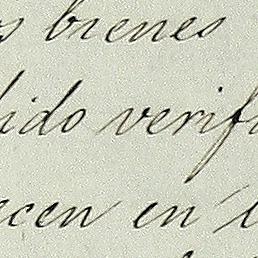 s bienes
dido verif
ecen en l